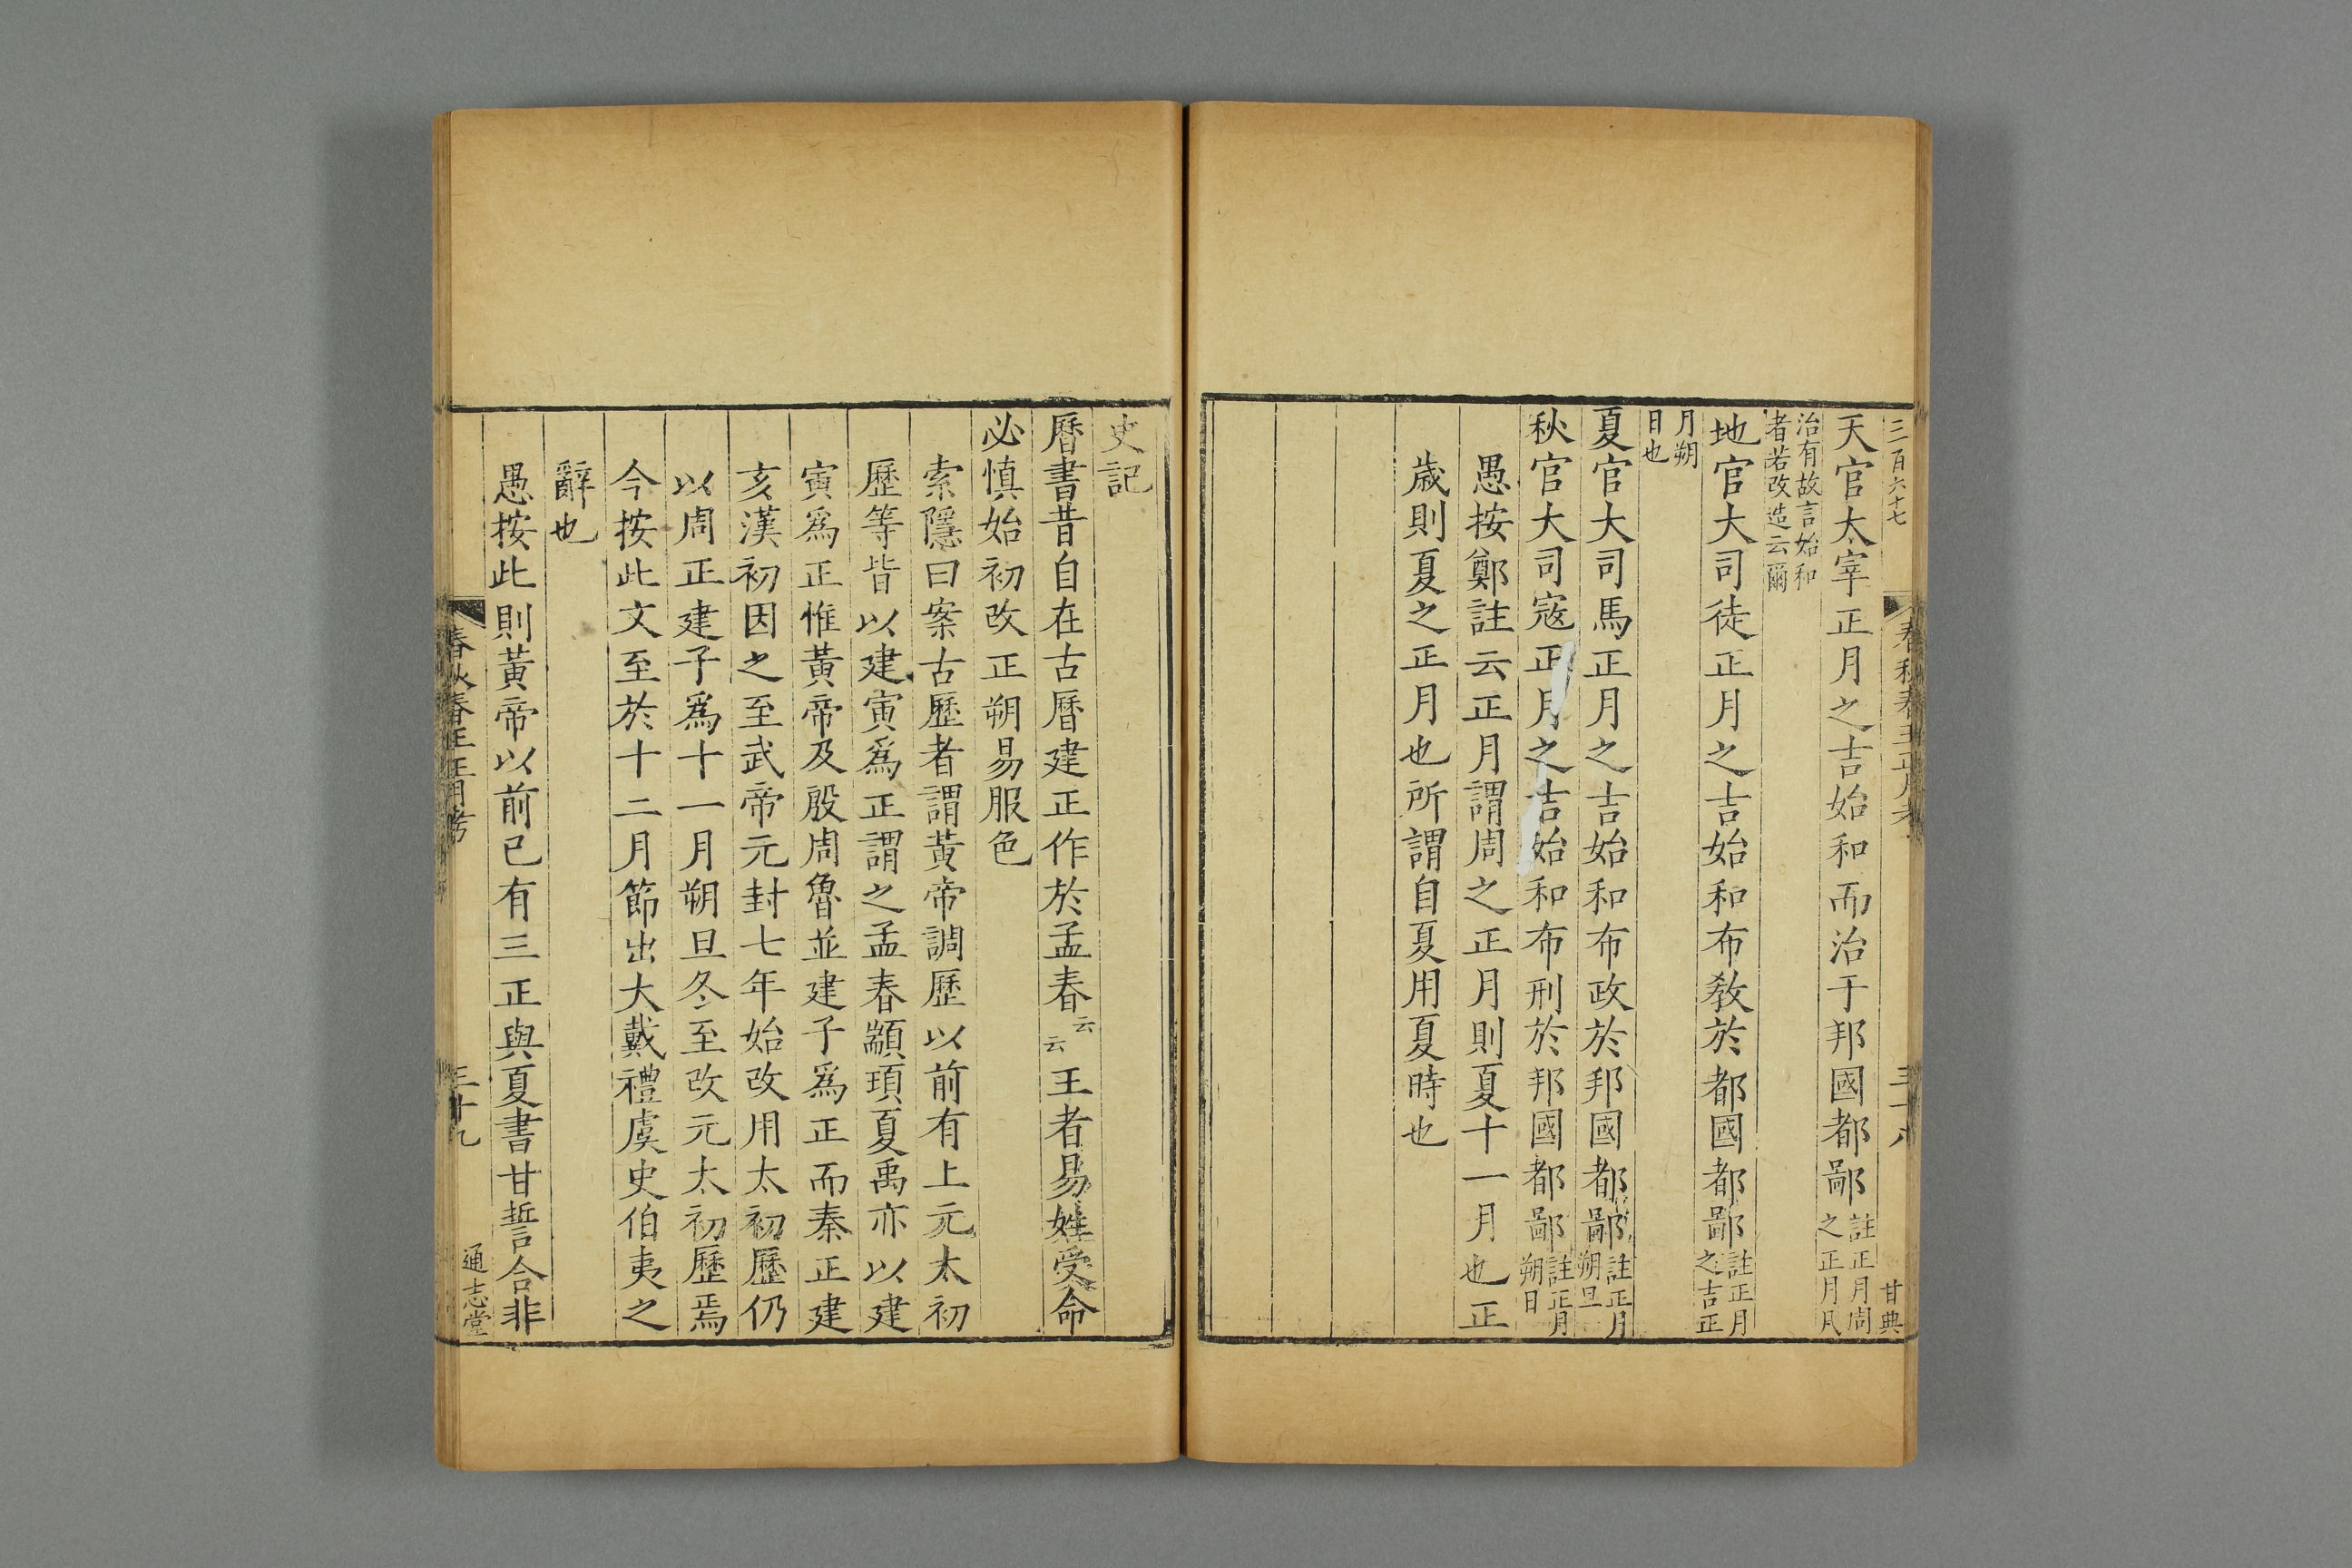 三百六十七
春秋春王正月考
三十八
甘典
天官太宰正月之吉始和而治于邦國都鄙註正月周之正月凡
治有故言始和者若改造云爾
地官大司徒正月之吉始和布敎於都國都鄙註正月之吉正
月朔日也
夏官大司馬正月之吉始和布政於邦國都鄙註正月朔旦
秋官大司寇正月之吉始和布刑於邦國都鄙註正月朔日
愚按鄭註云正月謂周之正月則夏十一月也正
歲則夏之正月也所謂自夏用夏時也
史記
曆書昔自在古曆建正作於孟春云云王者易姓受命
必慎始初改正朔易服色
索隱曰案古歷者謂黃帝調歷以前有上元太初
歷等皆以建寅爲正謂之孟春顓頊夏禹亦以建
寅爲正惟黃帝及殷周魯並建子爲正而秦正建
亥漢初因之至武帝元封七年始改用太初歷仍
以周正建子爲十一月朔旦冬至改元太初歷焉
今按此文至於十二月節出大戴禮虞史伯夷之
辭也
愚按此則黃帝以前已有三正與夏書甘誓合非
春秋春王正月考
三十九
通志堂